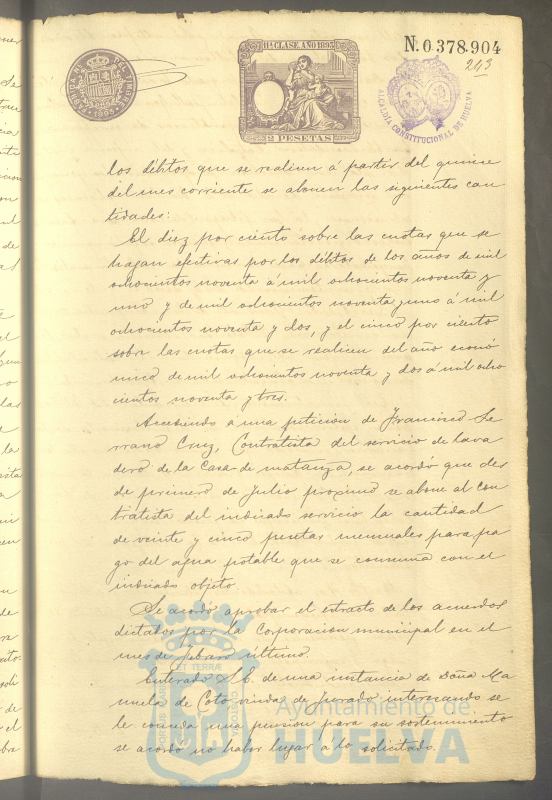 11ª CLASE. AÑO 1895
2 PESETAS
N.0.378.904
243
1895
ALCALDIA CONSTITUCIONAL DE HUELVA
los débitos que se realicen á partir del quince
del mes corriente se abonen las siguientes can
tidades:
El diez por ciento sobre las cuotas que se
hagan efectivas por los débitos de los años de mil
ochocientos noventa á mil ochocientos noventa y
uno y de mil ochocientos noventa y uno á mil
ochocientos noventa y dos, y el cinco por ciento
sobre las cuotas que se realicen del año econó
mico de mil ochocientos noventa y dos á mil ocho
cientos noventa y tres.
Accediendo a una petición de Francisco Se
rrano Cruz, Contratista del servicio de lava
dero de la Casa de matanza, se acordó que des
de primero de Julio proximo se abone al con
tratista del indicado servicio la cantidad
de veinte y cinco pesetas mensuales para pa
go del agua potable que se consuma con el
indicado objeto.
Se acordó aprobar el extracto de los acuerdos
dictados por la Corporacion municipal en el
mes de Febrero último.
Enterado S.E. de una instancia de Doña Ma
nuela de Coto viuda de Jurado interesando se
le conceda una pension para su sostenimiento
se acordó no haber lugar á lo solicitado.
Ayuntamiento de
HUELVA